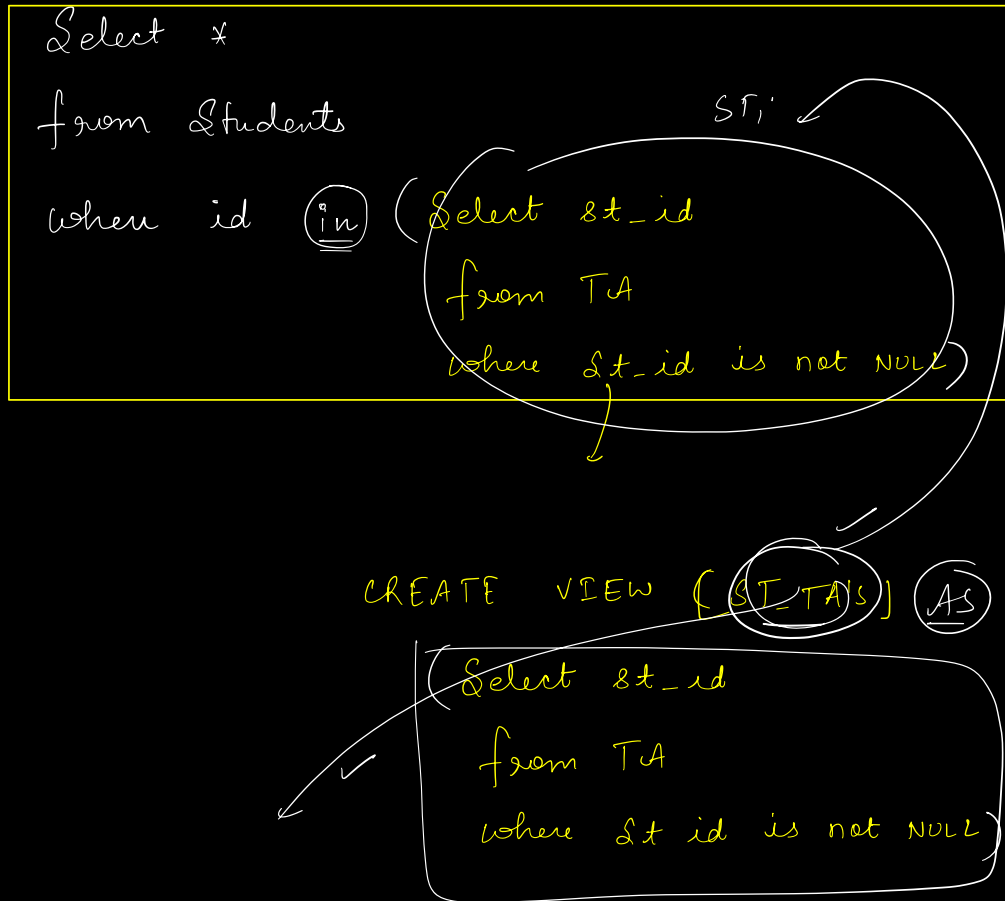 Select *
from Students
STi
where id in (Select st_id
from TA
where St_id is not NULL)
CREATE VIEW [ST_TA's] AS
(Select st_id
from TA
where St id is not NULL)